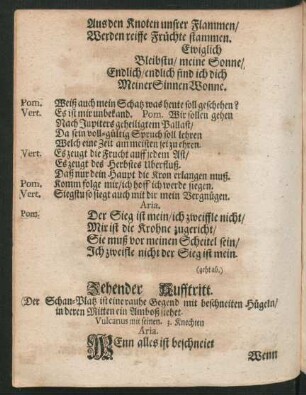 Aus den Knoten unsrer Flammen/
Werden reiffe Früchte stammen.
Ewiglich
Bleibstu/ meine Sonne/
Endlich/ endlich find ich dich
Meiner Sinnen Wonne.
Pom. Weiß auch mein Schatz was heute soll geschehen?
Vert. Es ist mir unbekand. Pom. Wir sollen gehen
Nach Jupiters geheiligtem Pallast/
Da sein voll-gültig Spruch soll lehren
Welch eine Zeit am meisten jetzu ehren.
Vert. Es zeugt die Frucht auff jedem Ast/
Es zeugt des Herbstes Uberfluß.
Daß nur dein Haupt die Kron erlangen muß.
Pom. Komm folge mir/ ich hoff ich werde siegen.
Vert. Siegstu so siegt auch mit dir mein Vergnügen.
Aria.
Pom. Der Sieg ist mein/ ich zweiffle nicht/
Mir ist die Krohne zugericht/
Sie muß vor meinen Scheitel sein/
Ich zweifle nicht der Sieg ist mein.
(geht ab.)
Zehender Aufftritt.
(Der Schau-Platz ist eine rauhe Gegend mit beschneiten Hügeln/
in deren Mitten ein Amboß stehet.
Vulcanus mit seinen 3. Knechten
Aria.
WEnn alles ist beschneiet
Wenn